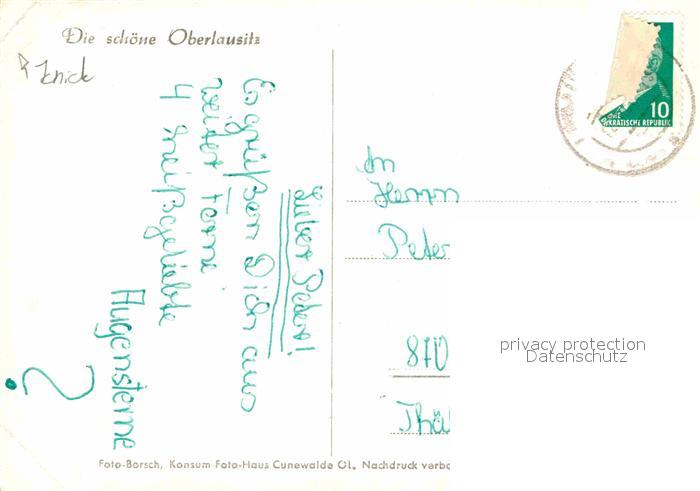 Die schöne Oberlausitz
Knick
Lieber Peter!
Es grüßen Dich aus
weiter Ferne
4 heißgeliebte
Augensterne
?
10
KRATISCHE REPUBLIK
An
Herrn
Peter
870
Thü
privacy protection
Datenschutz
Foto-Borsch, Konsum-Foto-Haus Cunewalde OL. Nachdruck verbo